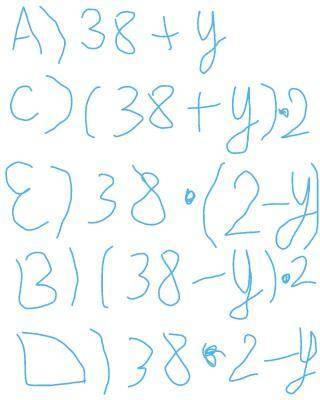 A) 38 + y
C) (38 + y) · 2
E) 38 · (2 - y)
B) (38 - y) · 2
D) 38 · 2 - y